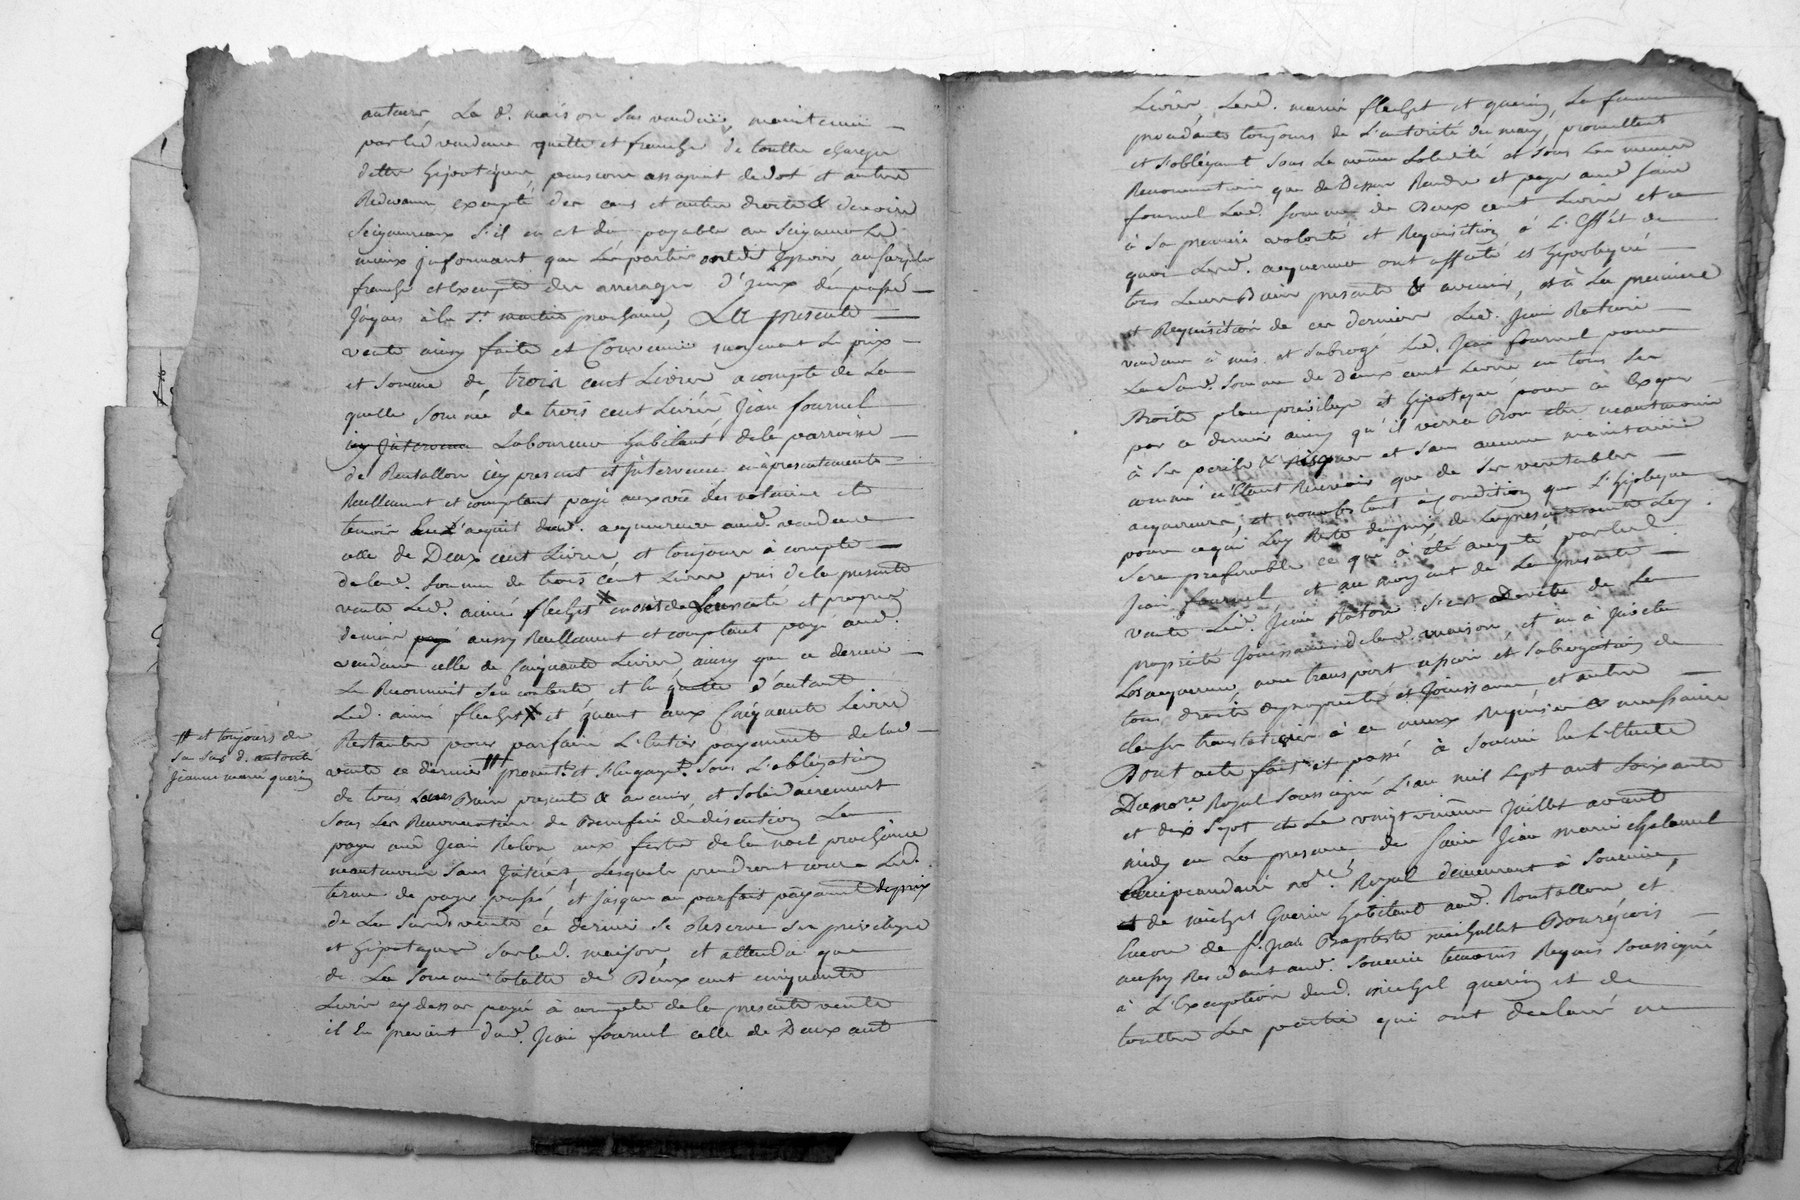 auteurs, La d. maison sus vendüe, maintenüe
par led vendeur quitte et franche de toutte charges
dettes hipoteques, pensions assignat de dot et autres
Redevances excepté des cens et autres droits & devoirs
Seigneuriaux s'il en est dû payables au Seigneur Le
mieux informant que Les parties ont dit Ignorer, au surplus
franche et Exempte des arrerages d'jceux du passé
jusques à la St martin prochaine, La presente
vente ainsy faitte et Convenüe moyenant Le prix
et somme de trois cent Livres a compte de La
quelle somme de trois cent Livres Jean fournel
icy Intervenu Laboureur habitant de la parroisse
de Rontallon icy present et Intervenu a presentement
Reellement et comptant payé aux vüe des notaire et
temoins à L'aquit dud. acquereurs aud. vendeur
celle de Deux cent Livres, et toujours à compte
de lad. somme de trois cent Livres prix de la presente
vente Led. aimé flechet
devenir payé aussy Reellement et comptant payé aud.
vendeur celle de Cinquante Livres, ainsy que ce dernier
Le Reconnoit s'en contente et En quitte d'autant
Led. aimé flechet et quant aux Cinquante Livres
Restantes pour parfaire L'entier payement de lad.
vente ce dernier # promet. et s'engagent. sous L'obligation
de tous Leurs Biens presents & avenir, et solidairement
sous Les Renonciations de Benefice de discution Les
payer aud Jean Raton aux fêtes de la noel prochaine
neantmoins sans Intérêt, Lesquels prendront cours Led.
terme de payer passé, et jusques au parfait payement du prix
de La susd. vente ce dernier se Reserve ses privileges
et hipoteques sur lad. maison, et attendu que
de La somme totalle de Deux cent cinquante
Livres cy dessus payée à compte de la presente vente
il En provient dud. Jean fournel celle de Deux cent
# et toujours de
sa sus d. autorité
Jeanne marie guerin
Livres, Lesd. mariés flechet et guerin, La femme
procedante toujours de L'autorité du mary, promettent
et s'obligent sous La même solidité et sous Les memes
Renonciations que de Dessus Rendre et payer aud Jean
fournel Lad. somme de Deux cent Livres et ce
à sa premiere volonté et Requisition à L'Effét de
quoi Lesd. acquereurs ont affecté et hipotequé
tous Leurs Biens presents & avenir, et à La premiere
et Requisition de ces derniers Led. Jean Raton
vendeur à mis et subrogé Led. Jean fournel pour
La susd. somme de Deux cent Livres en tous ses
Droits, places privileges et hipoteques pour en Exiger
par ce dernier ainsy qu'il verra Bon etre neantmoins
à ses perils & risques et sans aucune maintenüe
comme n'étant Recevoir que de ses veritables
acquereurs, et nonobstant à Condition que L'hipoteque
pour ce qui Luy Reste du prix de La presente vente Luy
sera preferable à ce qui à été accepté par led
Jean fournel et au moyent de La presente
vente Led. Jean Raton s'est Devetu de La
proprieté Jouissance de lad. maison, et en à Investi
Les acquereurs avec transport cession et subrogation de
tous droits de proprieté et Jouissance, et autres
clauses translatives à ce mieux Requises & necessaires
Dont acte fait et passé à Soucieu En L'Etude
Du nore. Royal soussigné L'an mil sept cent soixante
et dix sept et Le vingt Juillet avant
midy en La presence de sieur Jean marie
nore. Royal demeurant à Soucieu,
et de michel Guerin habitant aud. Rontallon et
Encore de sr. Jean Baptiste michallet Bourgeois
aussy Residant aud. Soucieu temoins Requis soussigné
à L'Exception dud. michel guerin et de
touttes Les parties qui ont declaré ne